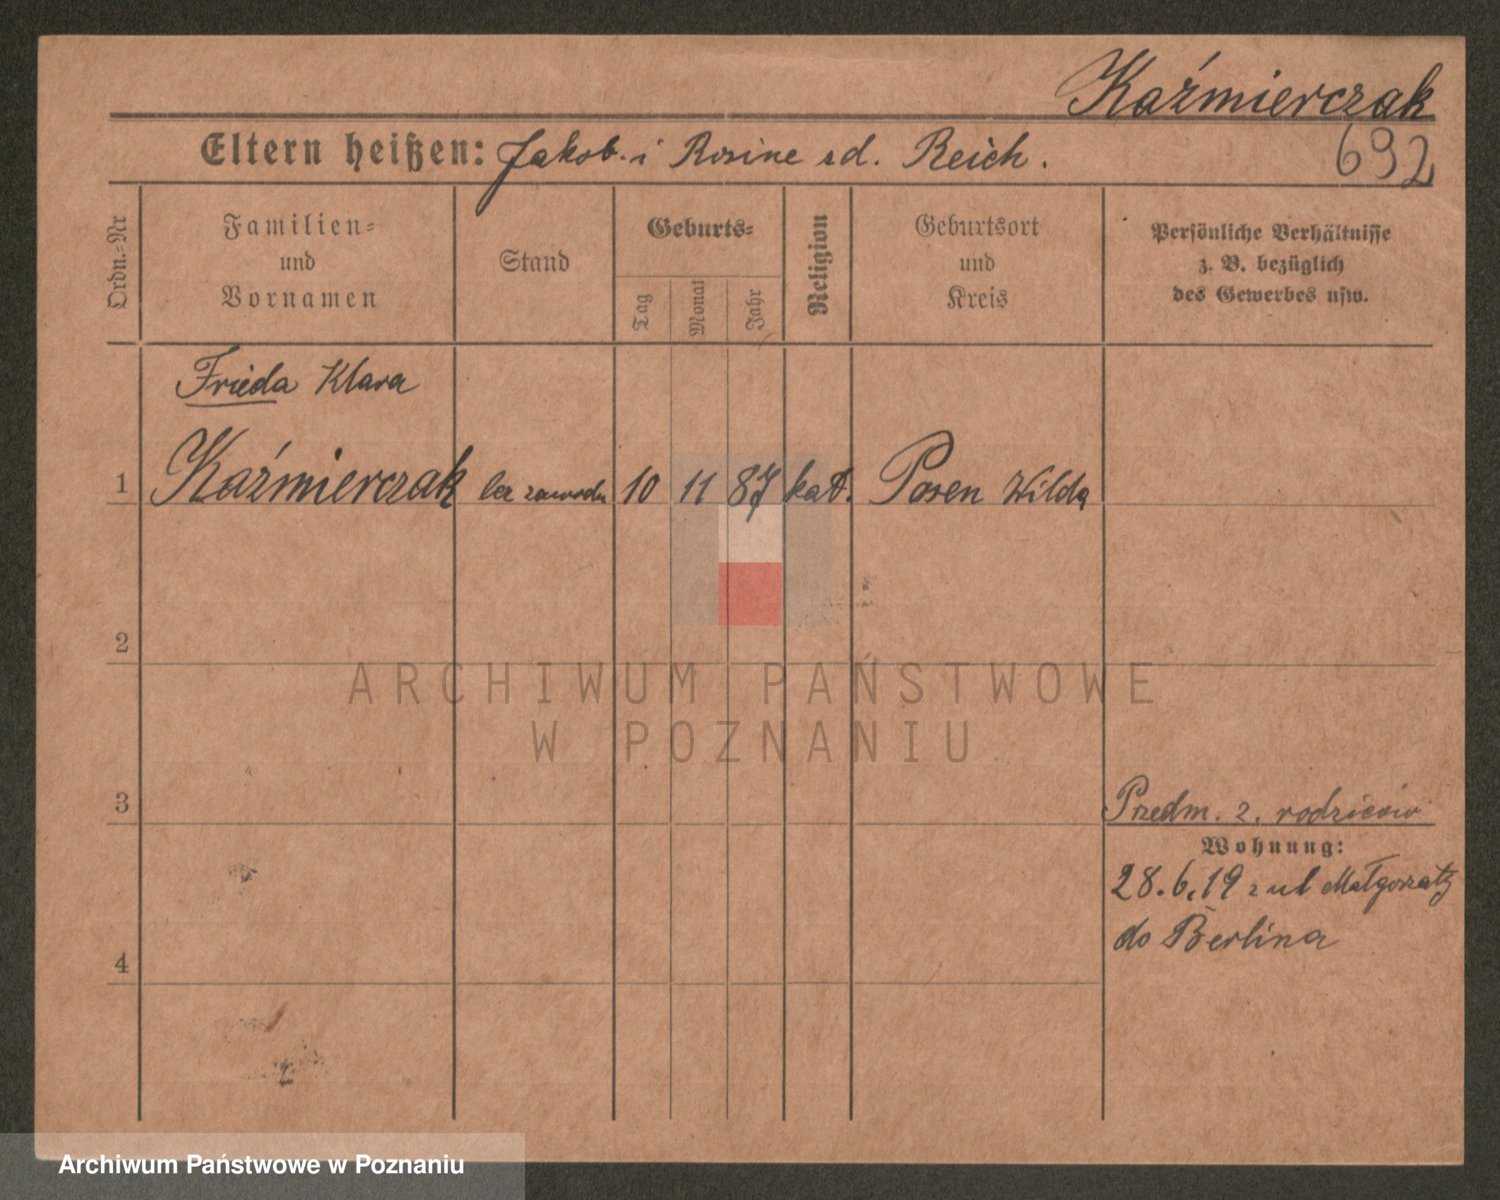 Kaźmierczak
Eltern heißen: Jakob i Rosine sd. Reich.
692
Ordn.-Nr
Familien-
und
Vornamen
Stand
Geburts-
Tag
Monat
Jahr
Religion
Geburtsort
und
Kreis
Persönliche Verhältnisse
z. B. bezüglich
des Gewerbes usw.
Frieda Klara
1 Kaźmierczak bez zawodu 10 11 87 kat. Posen Wilda
2
ARCHIWUM PAŃSTWOWE
W POZNANIU
3
Przedm. z. rodziców
Wohnung:
28.6.19 z ul Małgorzaty
4
do Berlina
Archiwum Państwowe w Poznaniu